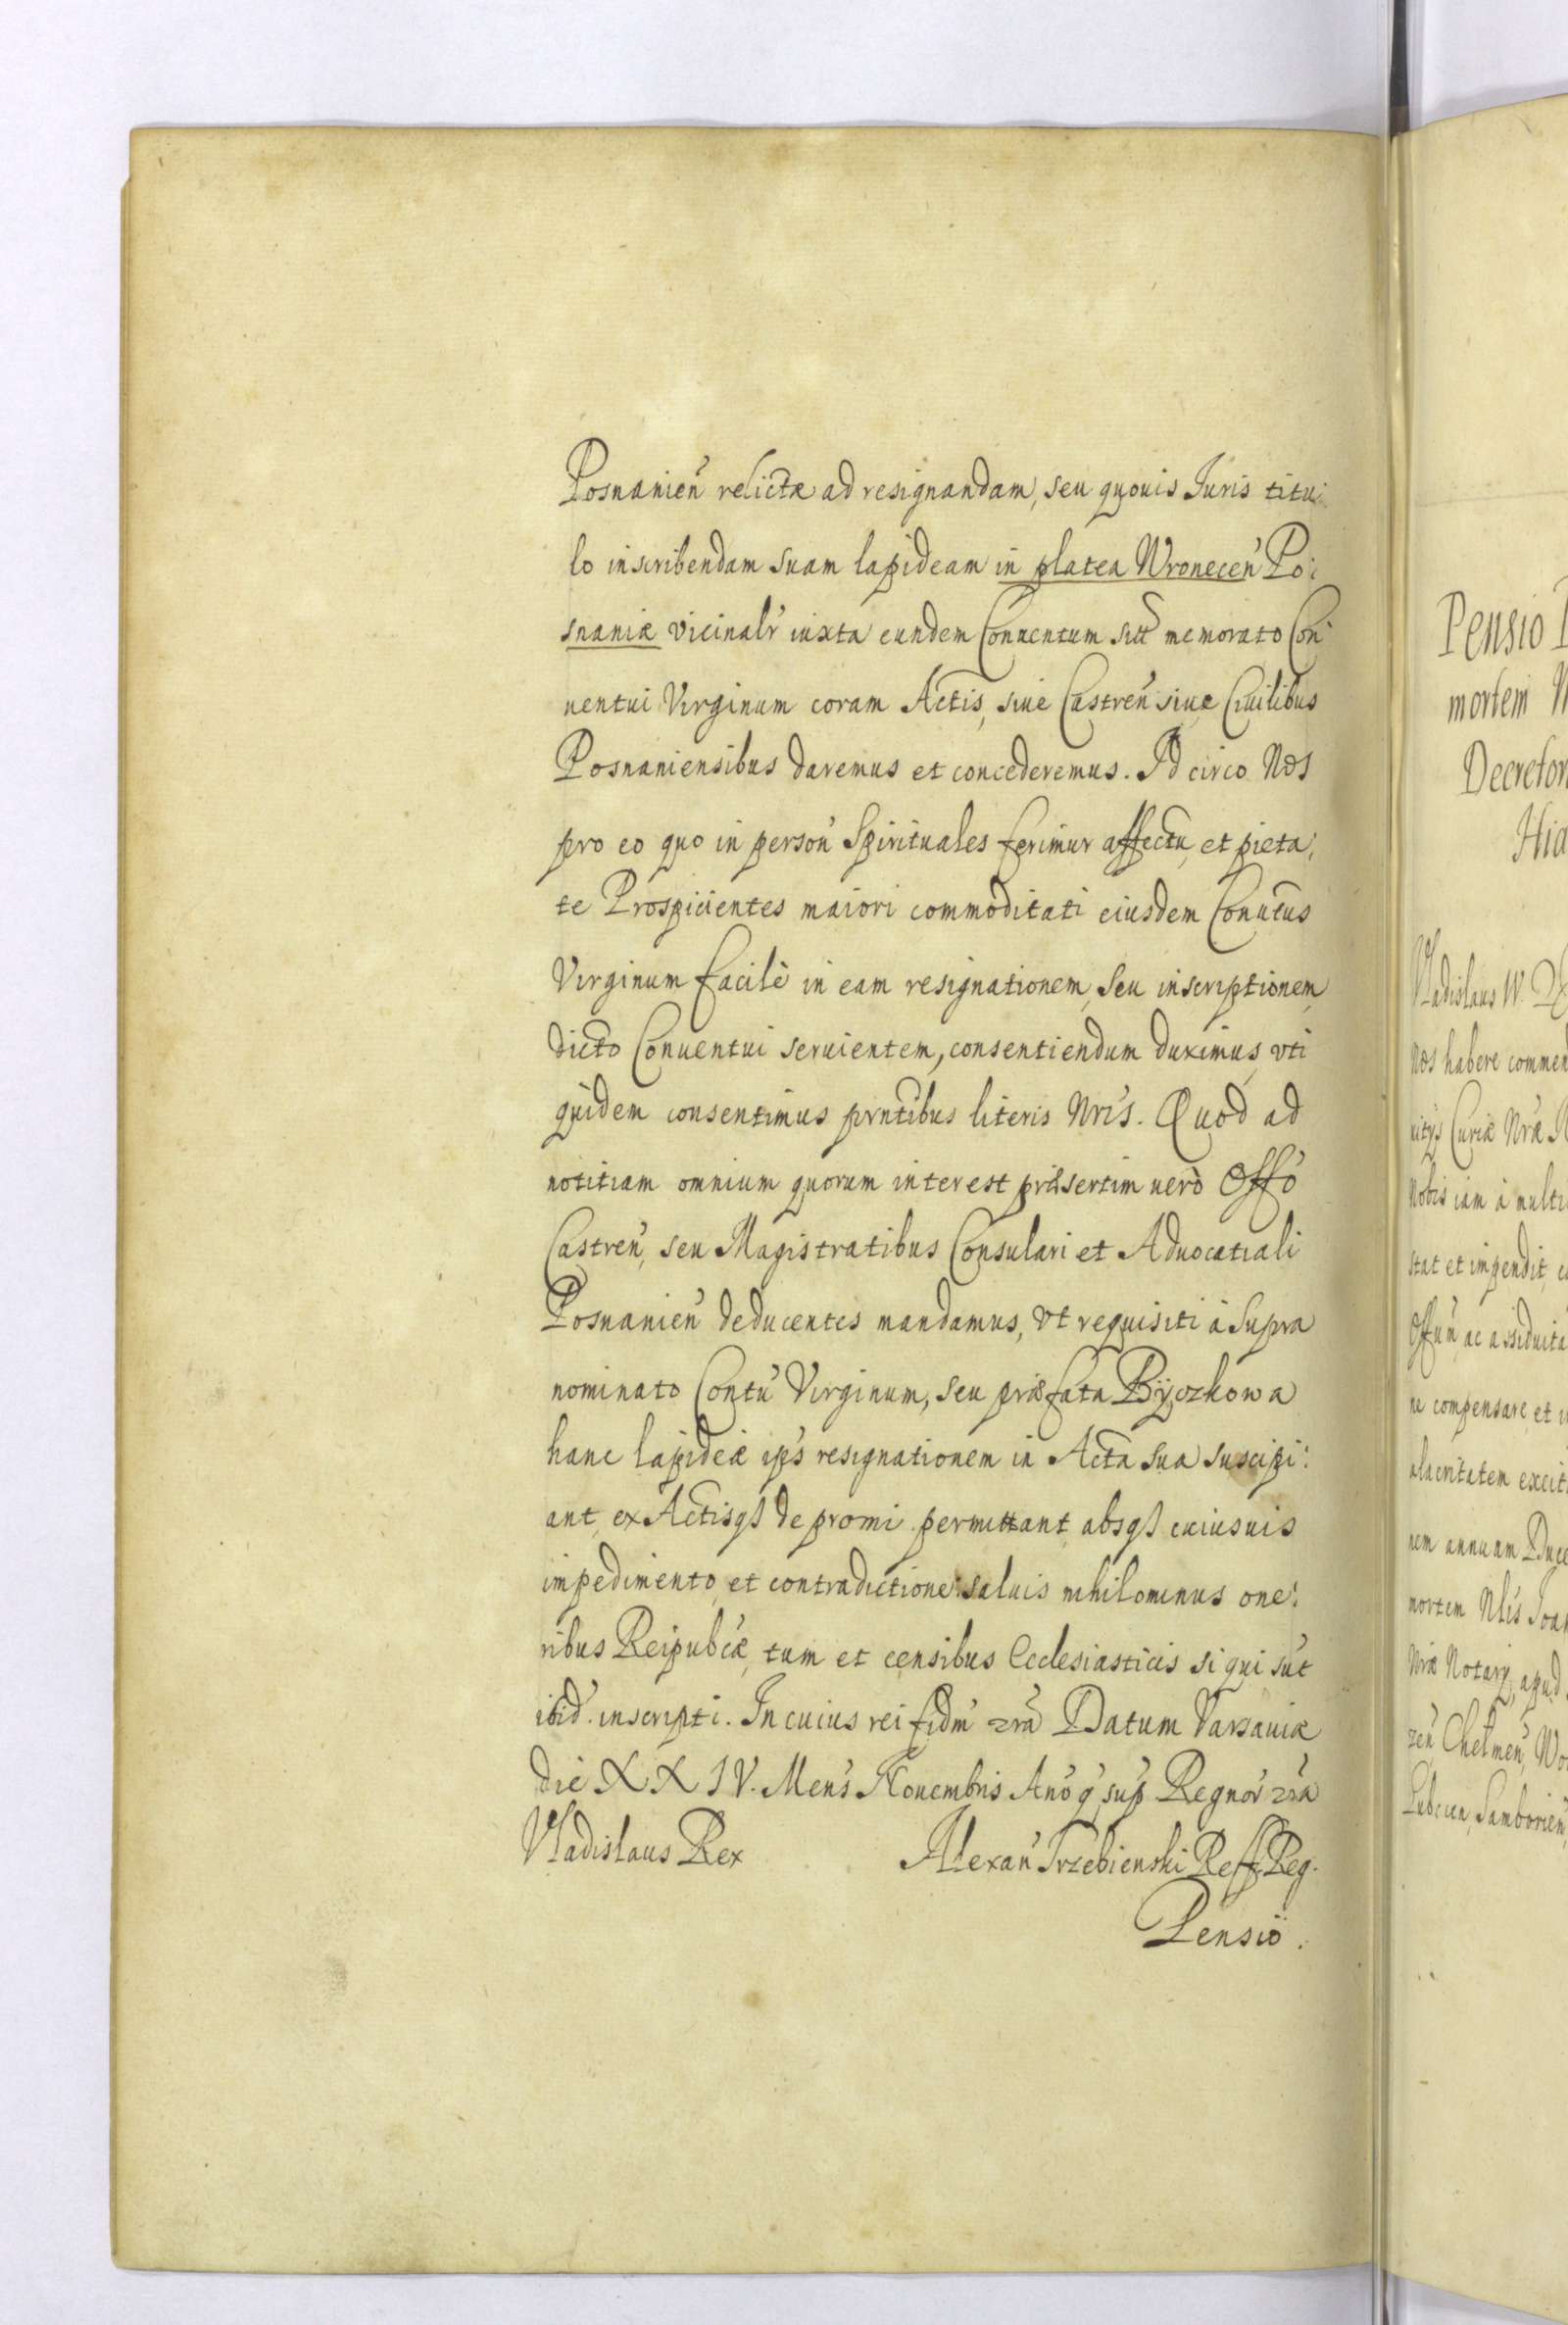 Posnanień relictæ ad resignandam, seu quouis Iuris titu:
lo inscribendam suam lapideam in platea Wroneceń Po:
snaniæ vicinalr̃ iuxta eundem Conuentum sitt̃ memorato Con:
uentui Virginum coram Actis, siue Castreń siue Ciuilibus
Posnaniensibus daremus et concederemus. Id circo Nos
pro eo quo in persoń Spirituales ferimur affectu, et pieta:
te Prospicientes maiori commoditati eiusdem Conutũs
Virginum facilè in eam resignationem, seu inscriptionem,
dicto Conuentui seruientem, consentiendum duximus, vti
quidem consentimus prntĩbus literis Nris. Quod ad
notitiam omnium quorum interest præsertim uerò Offo
Castreń, seu Magistratibus Consulari et Aduocatiali
Posnanień deducentes mandamus, vt requisiti à Supra
nominato Contũ Virginum, seu præfata Byczkowa
hanc lapideæ ips resignationem in Acta sua suscipi:
ant, ex Actisq de promi permittant, absq cuiusuis
impedimento, et contradictione: saluis nihilominus one:
ribus Reipubcæ, tum et censibus Ecclesiasticis si qui sut
ibid. inscripti. In cuius rei fidm̃ 2rã Datum Varsauiæ
die XXIV. Mens Nouembris Ano q sup Regnor 2rã
Vladislaus Rex Alexań Trzebienski Reff. Reg.
Pensio.
Pensio
mortem
Decretor
Hia
Vladislaus IV.
Nos habere commen
uitijs Curiæ Nræ
Nobis iam à multi
stat et impendit,
Offuń, ac assiduita
ne compensare, et
alacritatem excit
nem annuam Duce
mortem Nlis Joan
Nræ Notarij, apud
zeń Chełmeń, Wo
Lubcien, Samborień,